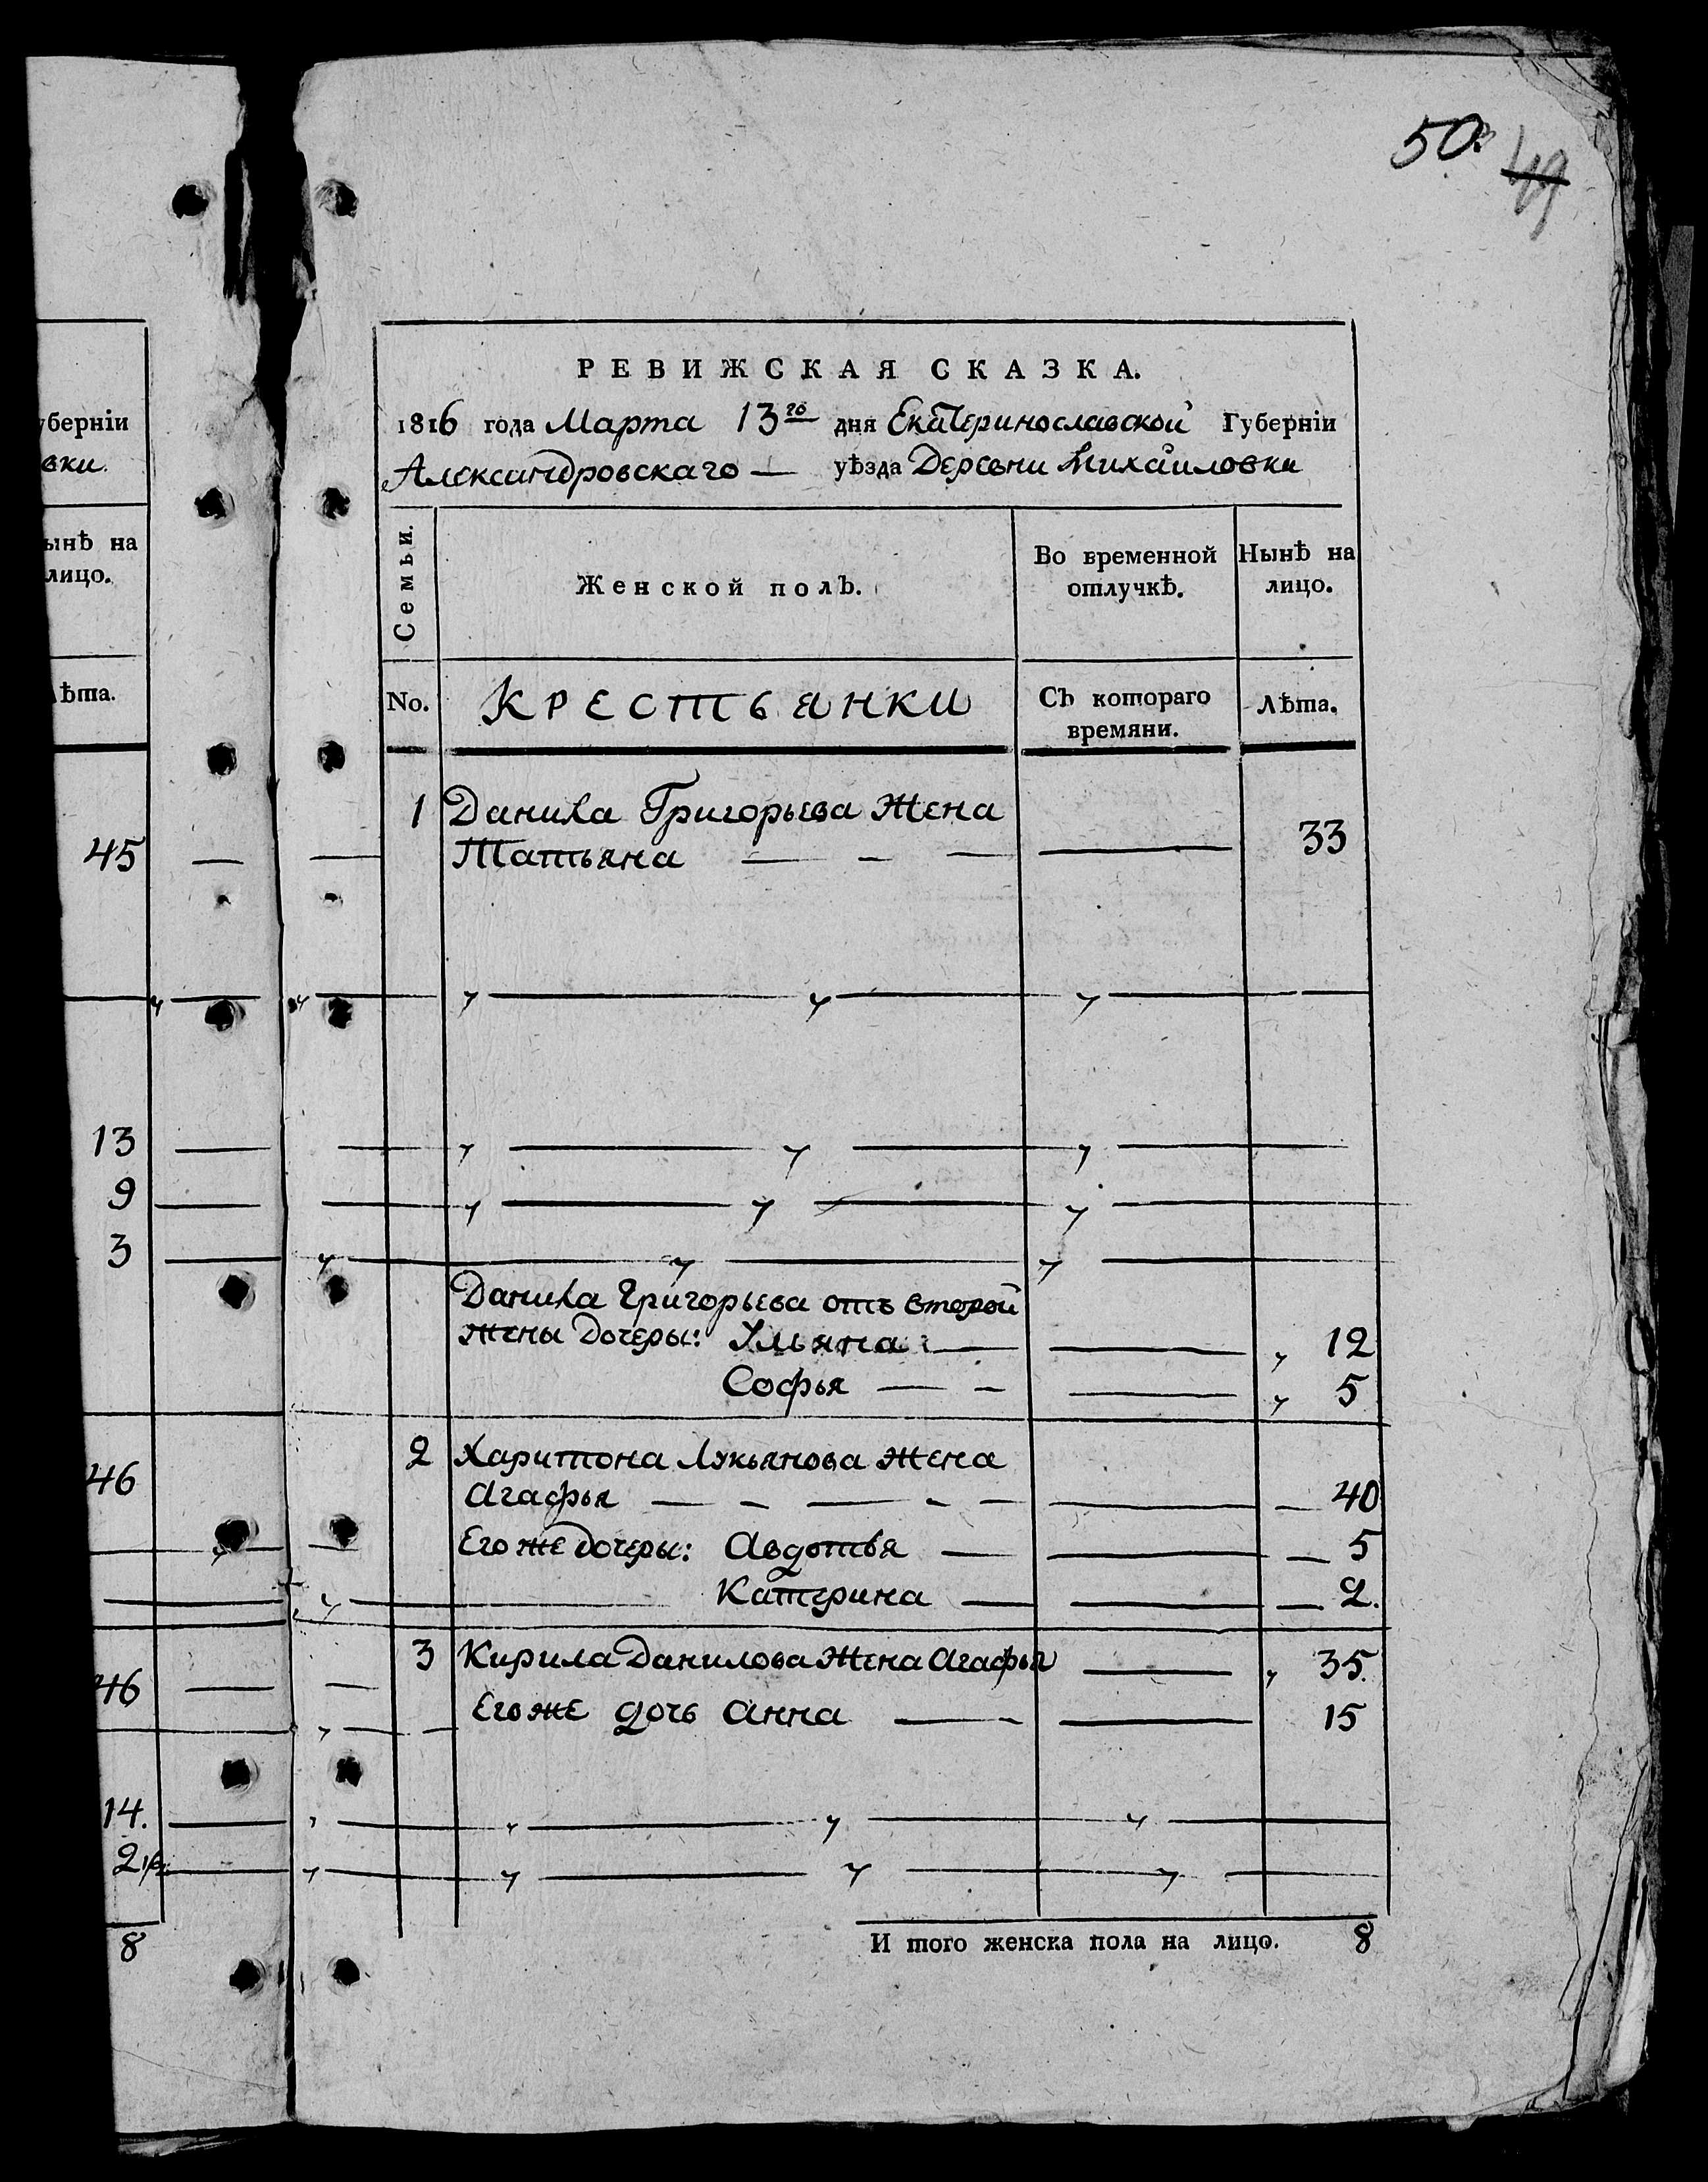 50.
49
РЕВИЖСКАЯ СКАЗКА.
1816 года Марта 13го дня Екатеринославской Губернїи
Александровскаго — уѣзда Деревни Михайловки
Семьи.
Женской полъ.
Во временной отлучкѣ.
Нынѣ на лицо.
No.
Крестьянки
Съ котораго времяни.
Лѣта.
1 Данила Григорьева жена
Татьяна — - — — 33
Данила Григорьева отъ второй
жены дочеры: Ульяна — — 12
Софья — - — 5
2 Харитона Лукьянова жена
Агафья — - — - - — — 40
Его же дочеры: Авдотья — — — 5
Катерина — — — 2.
3 Кирила Данилова жена Агафья — 35.
Его же дочь Анна — - — 15
И того женска пола на лицо. 8
убернїи
вки.
ынѣ на
лицо.
ѣта.
45
13
9
3
46
46
14.
8